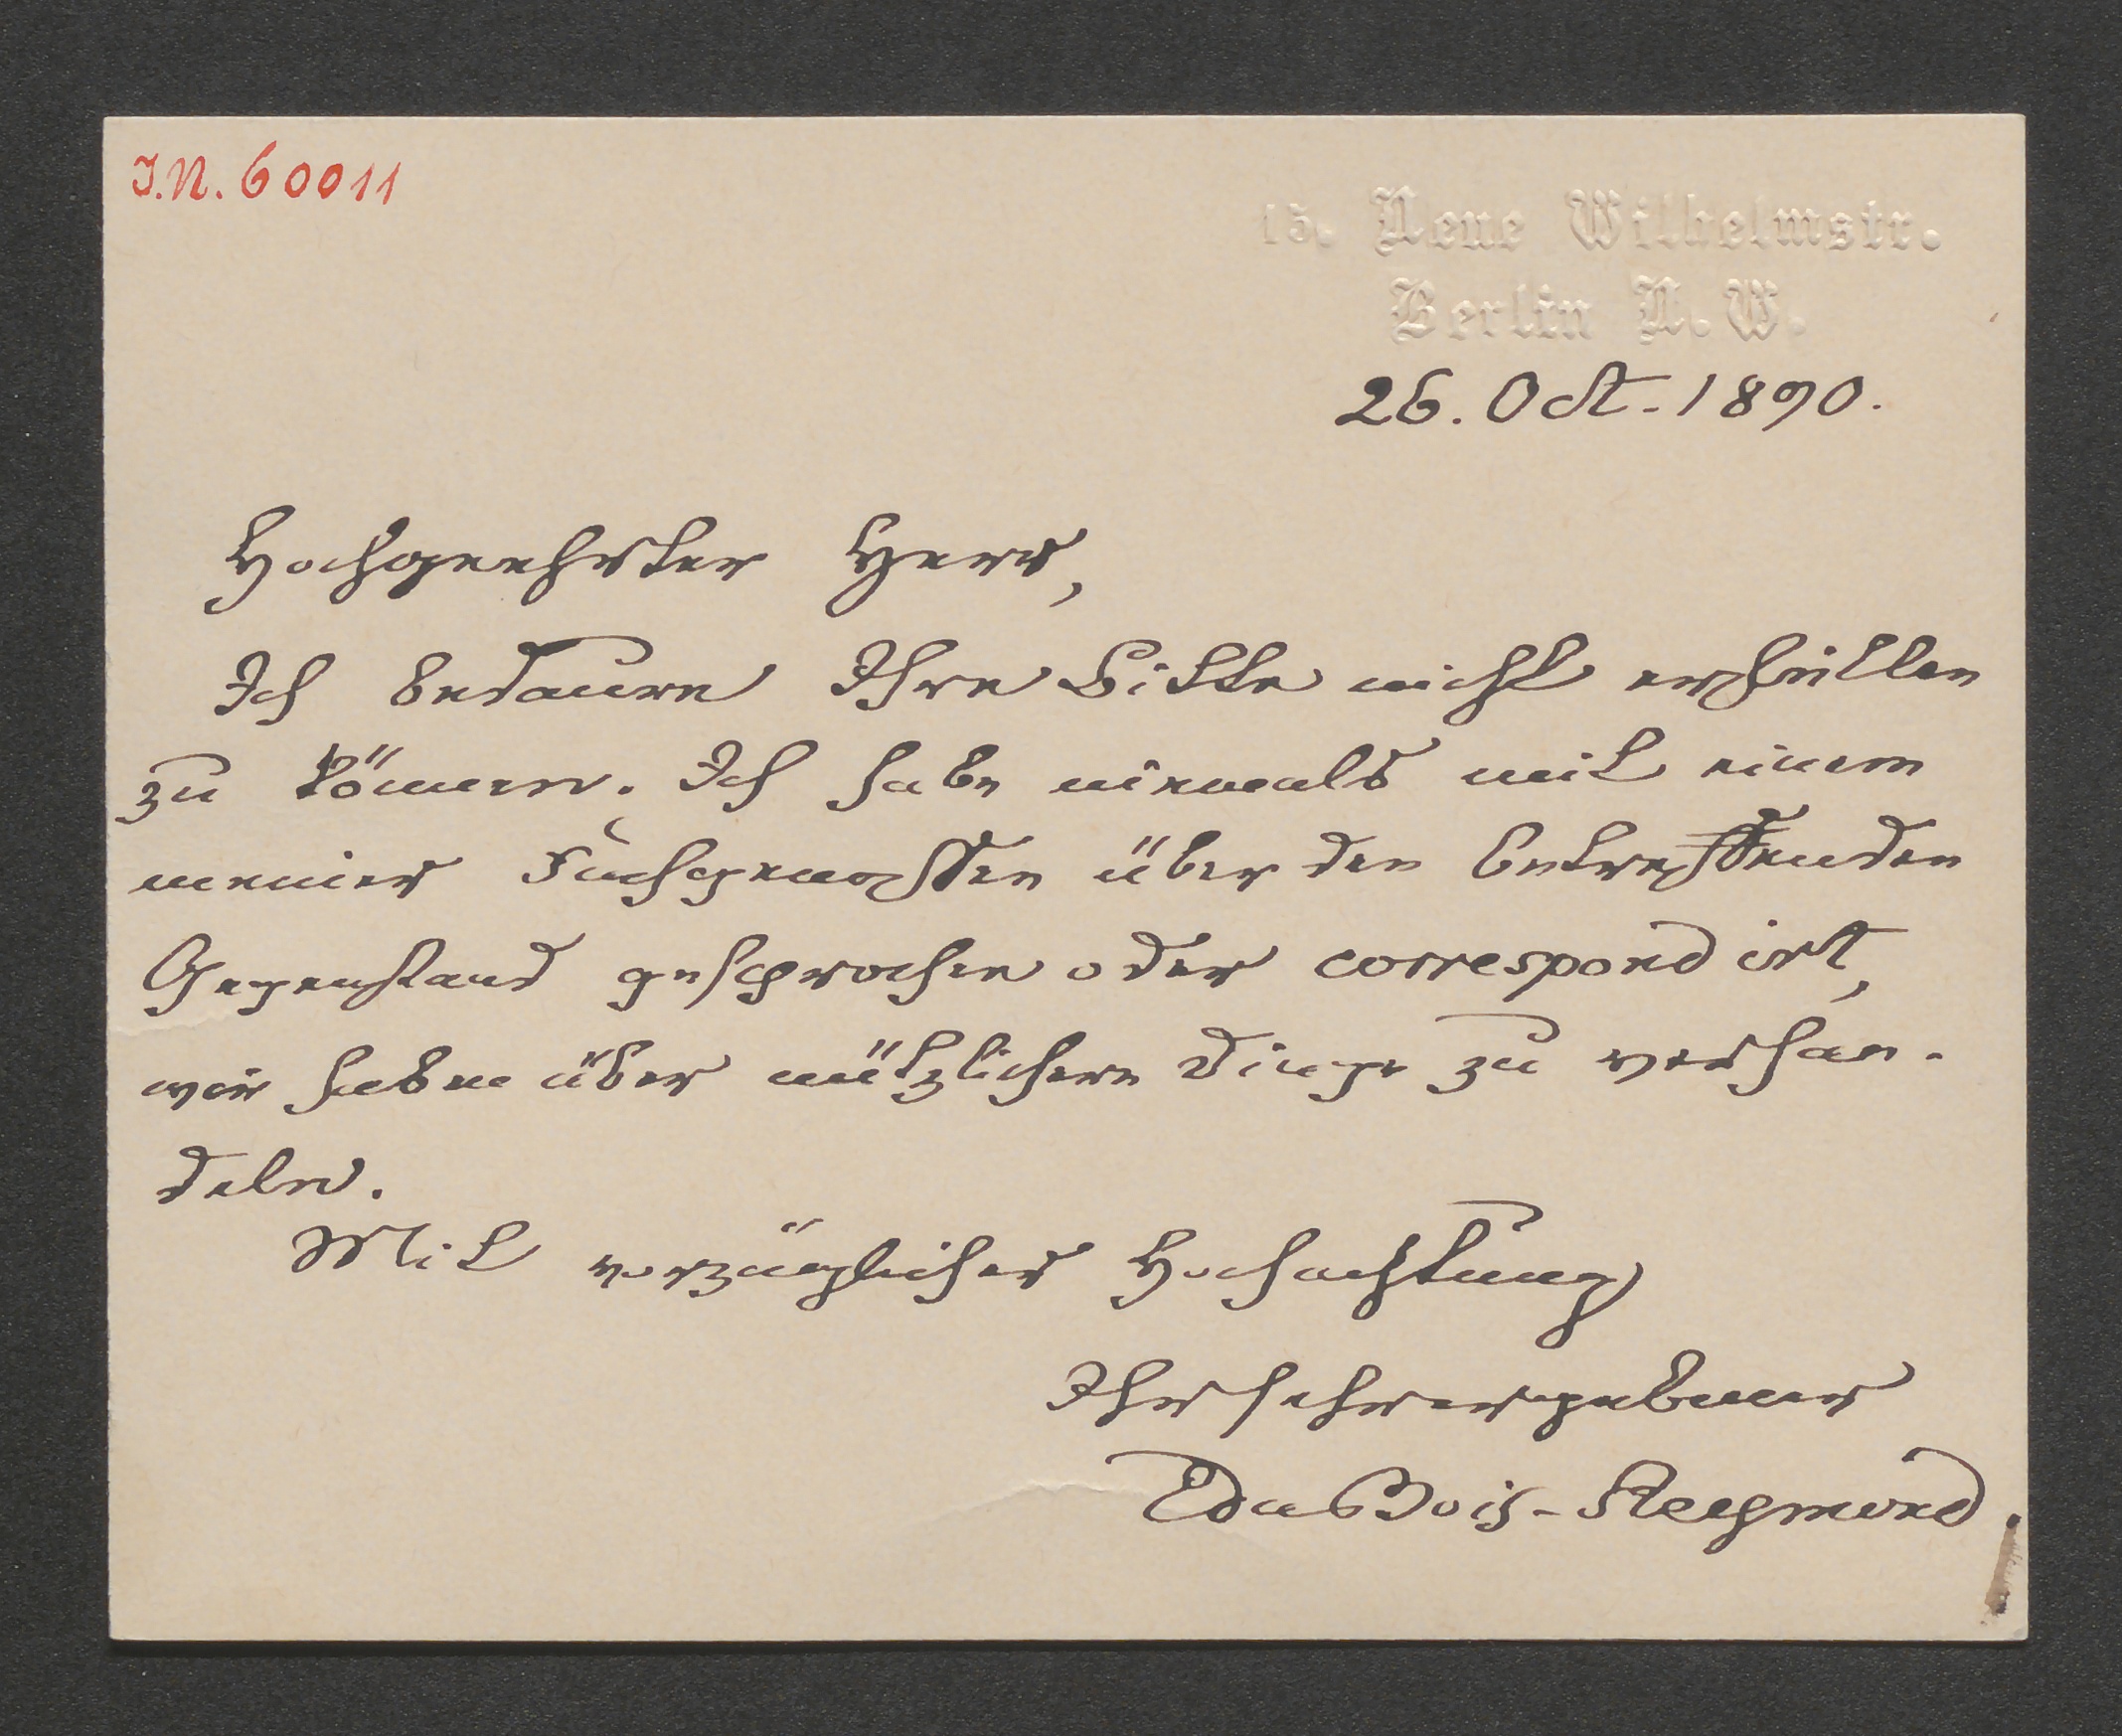 J.N. 60011
15. Neue Wilhelmstr.
Berlin N.W.
26. Oct. 1890.
Hochgeehrter Herr,
Ich bedaure Ihre Bitte nicht erfüllen
zu können. Ich habe niemals mit einem
meiner Fachgenossen über den betreffenden
Gegenstand gesprochen oder correspondirt,
wir haben über nützlichere Dinge zu verhan-
deln.
Mit vorzüglicher Hochachtung
Ihr sehr ergebener
EduBois-Reymond.